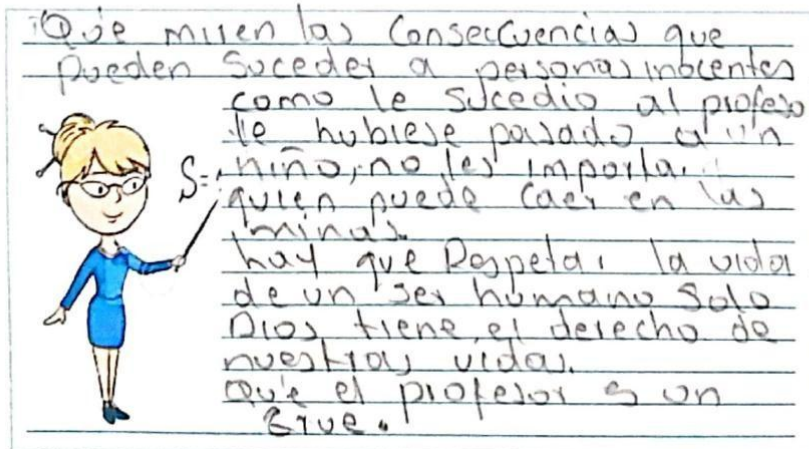 Que miren las Conseccuencias que
pueden Suceder a personas inocentes
como le sucedio al profeso
le hubiese pasado a un
S= niño, no les importa.
quien puede caer en las
minas.
hay que Respetar la vida
de un ser humano Solo
Dios tiene el derecho de
nuestras vidas.
Que el profesor es un